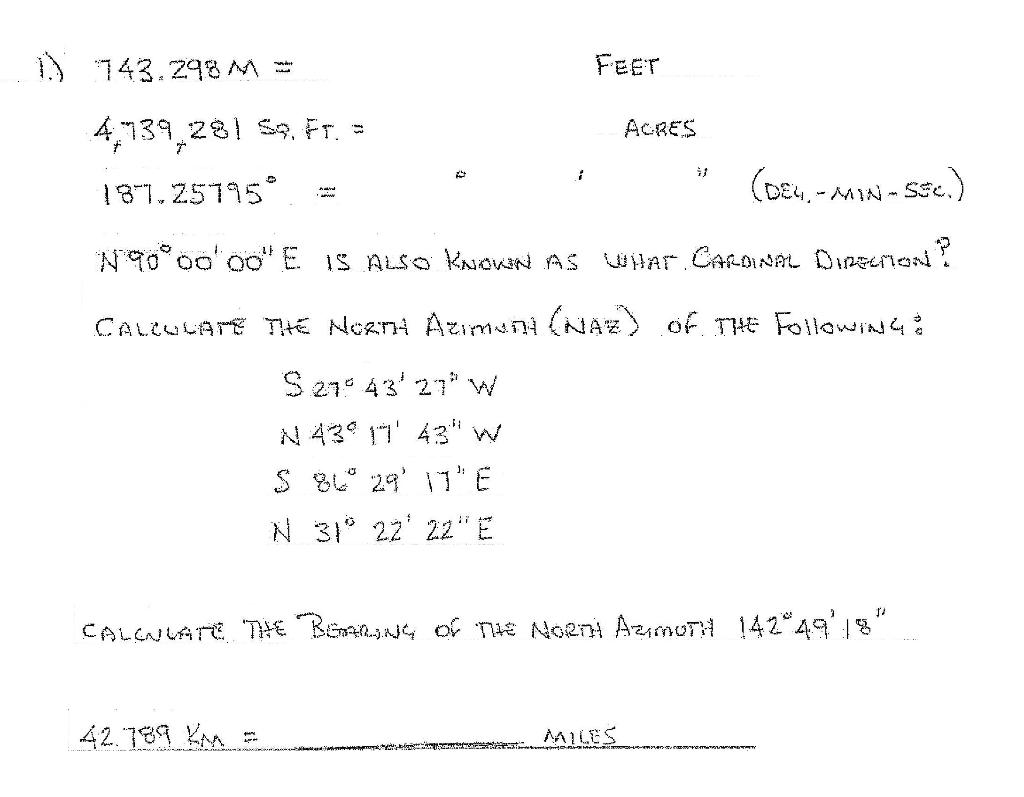 1.) 743.298 M = FEET
4,739,281 SQ. FT. = ACRES
187.25795° = ° ' " (DEG.-MIN-SEC.)
N 90° 00' 00" E IS ALSO KNOWN AS WHAT CARDINAL DIRECTION?
CALCULATE THE NORTH AZIMUTH (NAZ) OF THE FOLLOWING:
S 27° 43' 27" W
N 43° 17' 43" W
S 86° 29' 17" E
N 31° 22' 22" E
CALCULATE THE BEARING OF THE NORTH AZIMUTH 142° 49' 18"
42.789 KM = MILES